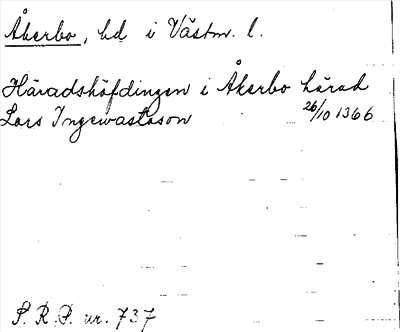 Åkerbo, hd i Västm. l.
Häradshöfdingen i Åkerbo härad
Lars Ingewastason 26/10 1366
S. R. P. nr. 737